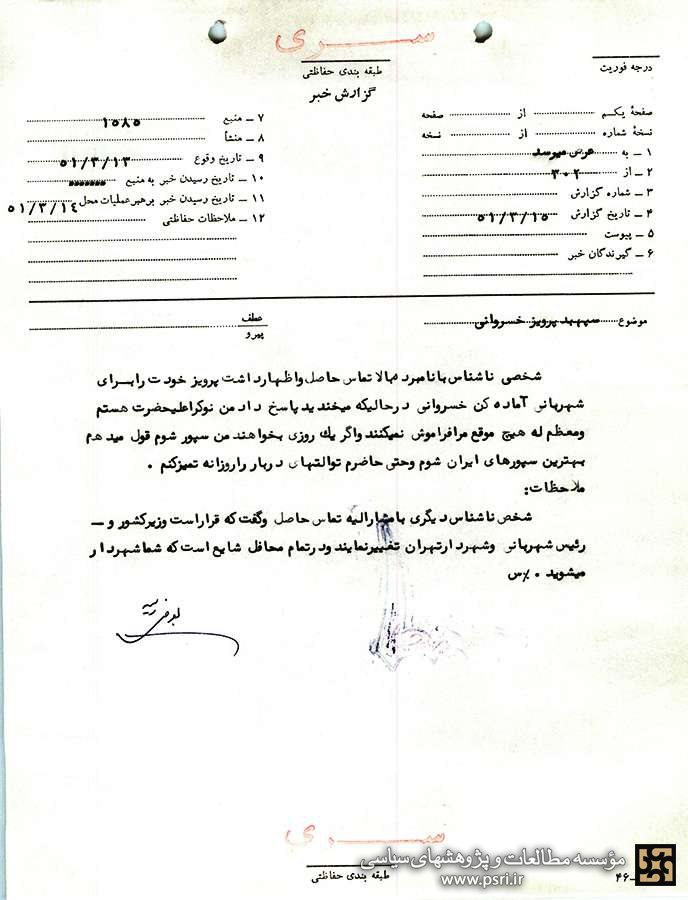 سری
طبقه بندی حفاظتی
گزارش خبر
درجه فوریت
صفحهٔ یکم از صفحه
نسخهٔ شماره از نسخه
۱ ـ به عرض میرسد
۲ ـ از ۳۰۲
۳ ـ شماره گزارش
۴ ـ تاریخ گزارش ۵۱/۳/۱۵
۵ ـ پیوست
۶ ـ گیرندگان خبر
۷ ـ منبع ۱۵۸۵
۸ ـ منشأ
۹ ـ تاریخ وقوع ۵۱/۳/۱۳
۱۰ ـ تاریخ رسیدن خبر به منبع
۱۱ ـ تاریخ رسیدن خبر برهبر عملیات محل ۵۱/۳/۱۴
۱۲ ـ ملاحظات حفاظتی
موضوع سپهبد پرویز خسروانی
عطف
پیرو
شخصی ناشناس با نامبرده بالا تماس حاصل و اظهار داشت پرویز خودت را برای
شهربانی آماده کن خسروانی در حالیکه میخندید پاسخ داد من نوکر اعلیحضرت هستم
ومعظم له هیچ موقع مرا فراموش نمیکنند واگر یك روزی بخواهند من سپور شوم قول میدهم
بهترین سپورهای ایران شوم وحتی حاضرم توالتهای دربار را روزانه تمیزکنم .
ملاحظات:
شخص ناشناس دیگری با مشارالیه تماس حاصل وگفت که قرار است وزیرکشور و ـ
رئیس شهربانی وشهردار تهران تغییر نمایند ودر تمام محافل شایع است که شما شهردار
میشوید . %س
سری
طبقه بندی حفاظتی
۴۶ـ
مؤسسه مطالعات و پژوهشهای سیاسی
www.psri.ir